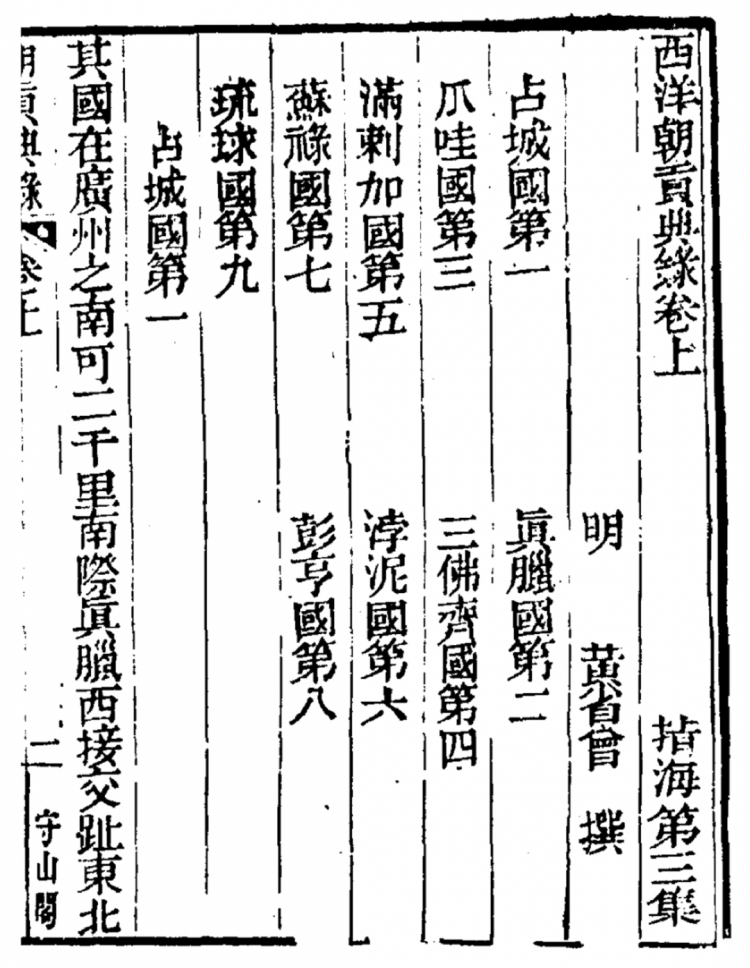 西洋朝貢典錄卷上　指海第三集
明　黃省曾　撰
占城國第一　眞臘國第二
爪哇國第三　三佛齊國第四
滿剌加國第五　浡泥國第六
蘇祿國第七　彭亨國第八
琉球國第九
占城國第一
其國在廣州之南可二千里南際眞臘西接交趾東北
朝貢典錄　卷上　二　守山閣